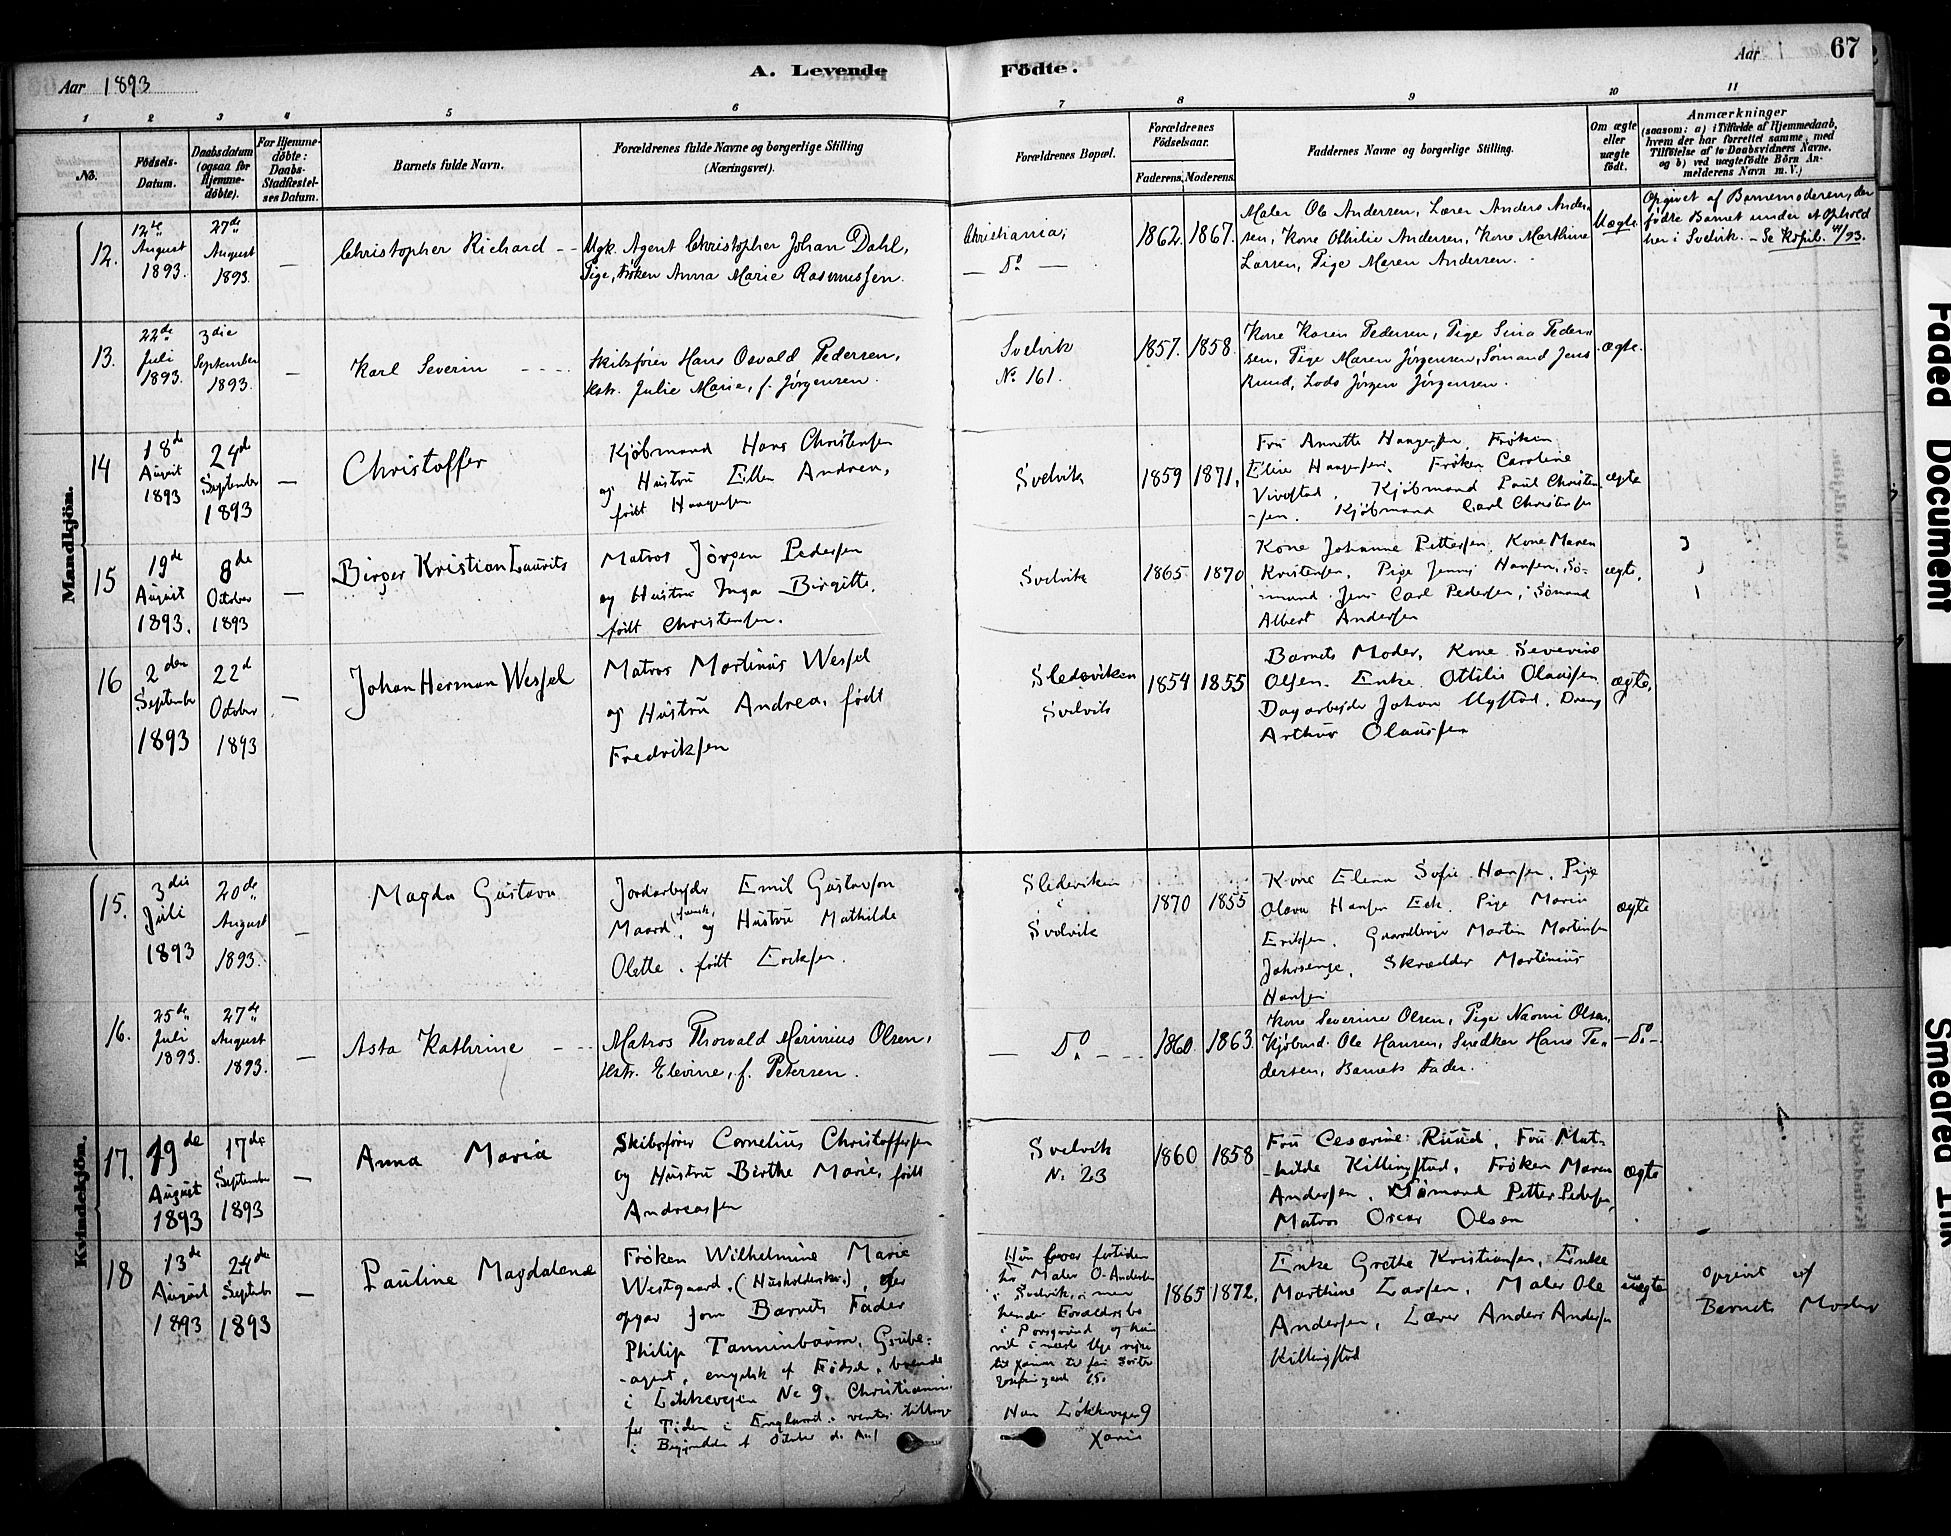 Aar 1893
A. Levende
Födte.
Aar
67
1 2 3 4 5 6 7 8 9 10 11
No.
Födsels-
Datum.
Daabsdatum
(ogsaa for
Hjemme-
döbte).
For Hjemme-
döbte:
Daabs-
Stadfæstel-
ses Datum.
Barnets fulde Navn.
Forældrenes fulde Navne og borgerlige Stilling
(Næringsvei).
Forældrenes Bopæl.
Forældrenes
Födselsaar.
Faderens. Moderens.
Faddernes Navne og borgerlige Stilling.
Om ægte
eller
uægte
födt.
Anmærkninger
(saasom: a) i Tilfælde af Hjemmedaab,
hvem der har forrettet samme, med
Tilföielse af to Daabsvidners Navne,
og b) ved uægtefödte Börn An-
melderens Navn m. V.)
Mandkjön.
12.
12te
August
1893.
27de
August
1893.
—
Christopher Richard - -
Ugk. Agent Christopher Johan Dahl,
Pige, Frøken Anna Marie Rasmussen.
Christiania;
— Do —
1862. 1867.
Maler Ole Andersen, Lærer Anders Ander-
sen, Kone Othilie Andersen, Kone Marthine
Larsen, Pige Maren Andersen.
Uægte.
Opgivet af Barnemoderen, der
fødte Barnet under et Ophold
her i Svelvik. - Se Kopib.
13.
22de
Juli
1893.
3die
September
1893.
—
Karl Severin - - - -
Skibsfører Hans Osvald Pedersen,
Hstr. Julie Marie, f. Jørgensen.
Svelvik
No 161.
1857. 1858.
Kone Karen Pedersen, Pige Sina Peder-
sen, Pige Maren Jørgensen, Sømand Jens
Ruud, Lods Jørgen Jörgensen.
ægte.
14
18de
August
1893
24de
September
1893
—
Christoffer
Kjøbmand Hans Christensen
og Hustru Ellen Andrea,
født Haagensen
Svelvik
1859 1871.
Fru Annette Haagensen, Frøken
Elise Haagensen, Frøken Caroline
Kjøbmand Paul Christen-
-sen. Kjøbmand Carl Christensen
ægte
15
19de
August
1893.
8de
October
1893
—
Birger Kristian Laurits
Matros Jörgen Pedersen
og Hustru Inga Birgitte,
født Christensen.
Svelvik
1865. 1870
Kone Johanne Pettersen, Kone Maren
Kristensen, Pige Jenny Hansen, Sø-
mand Jens Carl Pedersen, Sømand
Albert Andersen
ægte.
16
2den
September
1893
22d
October
1893
—
Johan Herman Wessel
Matros Martinus Wessel
og Hustru Andrea, født
Fredriksen
Sledeviken
Svelvik
1854 1855
Barnets Moder, Kone Severine
Olsen. Enke Ottilie Olaussen
Dagarbejder Johan Mystad, Dreng
Arthur Olaussen
ægte.
Kvindekjön.
15.
3die
Juli
1893
20de
August
1893.
—
Magda Gustava
Jordarbejder Emil Gustavson
Maard, (svensk) og Hustru Mathilde
Olette, født Eriksen.
Sledeviken
Svelvik
1870 1855
Kone Elena Sofie Hansen, Pige
Olava Hansen Eek. Pige Maria
Eriksen. Gaardbruger Martin Martinsen
Skrædder Martinius
Hansen
ægte
16.
25de
Juli
1893.
27de
August
1893.
—
Asta Kathrine - - -
Matros Thorvald Marinius Olsen,
Hstr. Elevine, f. Petersen.
— Do - - - -
1860. 1863.
Kone Severine Olsen, Pige Naomi Olsen,
Kjøbmd. Ole Hansen, Snedker Hans Pe-
dersen, Barnets Fader.
- Do -
17.
19de
August
1893
17de
September
1893
—
Anna Maria
Skibsfører Cornelius Christoffersen
og Hustru Birthe Marie, født
Andreassen
Svelvik
No 23
1860 1858
Fru Cesarine Ruud, Fru Mat-
-hilde Killingstad, Frøken Maren
Andersen, Sømand Petter Pedersen,
Matros Oscar Olsen
ægte
18
13de
August
1893
24de
September
1893
—
Pauline Magdalena
Frøken Wilhelmine Marie
Westgaard, (Husholderske), der
opgav som Barnets Fader
Philip Tanninbaum, Grube-
-agent, engelsk af Fødsel, boende
i Løkkevejen No 9, Christiania,
for Tiden i England, ventes tilbage
i Begyndelse af October d. A.
Hun bor fortiden
hos Maler O. Andersen
i Svelvik, men
hendes Forældre bo
i Porsgrund og hun
vil i næste Uge rejse
Han Løkkevejen 9
Xania
1865 1872.
Enke Grethe Kristiansen, Enke
Marthine Larsen, Maler Ole
Andersen, Lærer Anders Andersen
Killingstad
uægte
Opgivet af
Barnets Moder
Faded Document
Smeared Ink